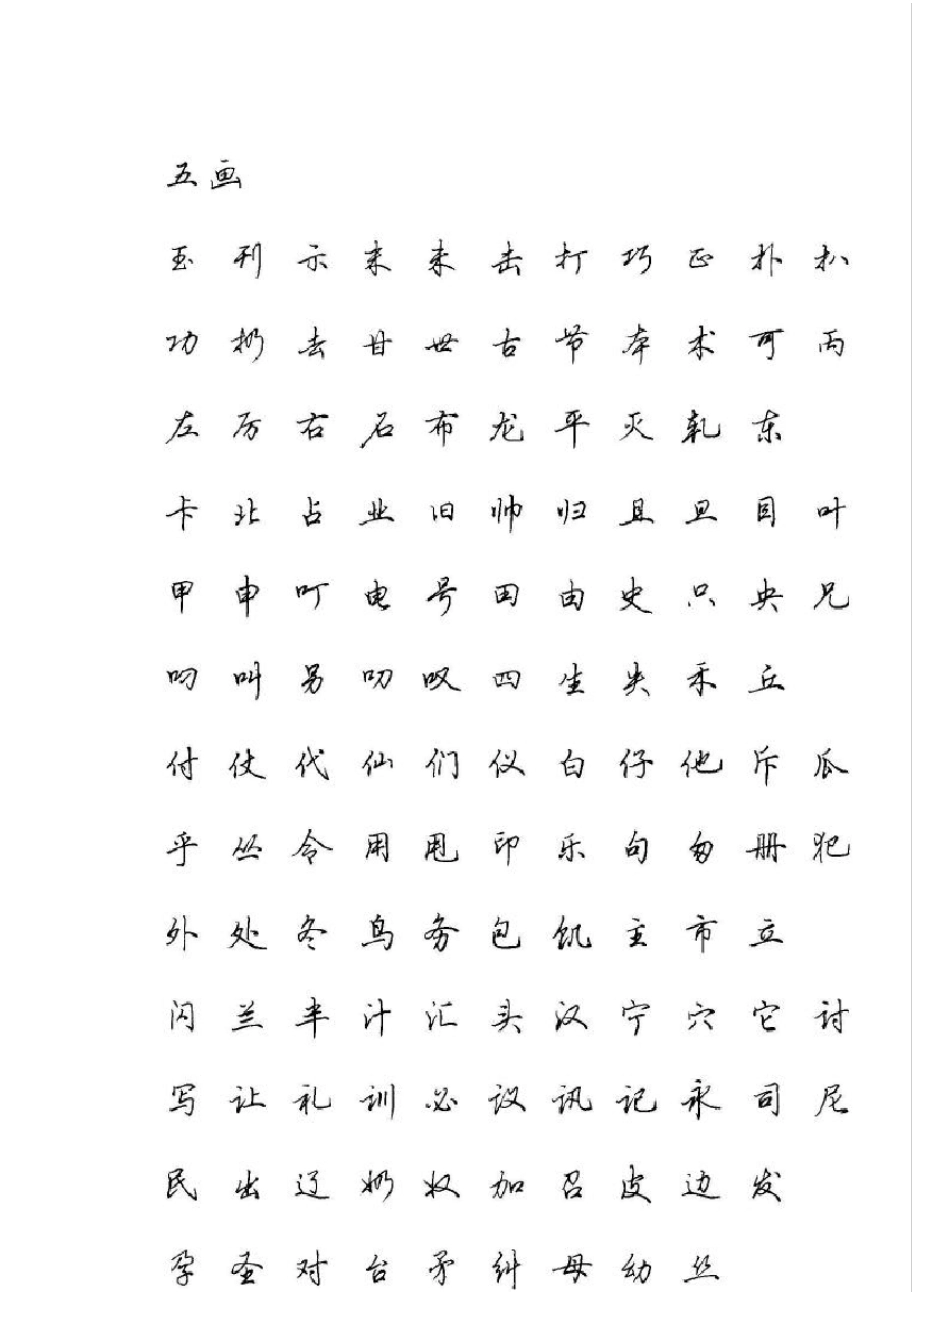 五画
玉 刊 示 末 未 击 打 巧 正 扑 扒
功 扔 去 甘 世 古 节 本 术 可 丙
左 厉 右 石 布 龙 平 灭 轧 东
卡 北 占 业 旧 帅 归 且 旦 目 叶
甲 申 叮 电 号 田 由 史 只 央 兄
叼 叫 另 叨 叹 四 生 失 禾 丘
付 仗 代 仙 们 仪 白 仔 他 斥 瓜
乎 丛 令 用 甩 印 乐 句 匆 册 犯
外 处 冬 鸟 务 包 饥 主 市 立
闪 兰 半 汁 汇 头 汉 宁 穴 它 讨
写 让 礼 训 必 议 讯 记 永 司 尼
民 出 辽 奶 奴 加 召 皮 边 发
孕 圣 对 台 矛 纠 母 幼 丝